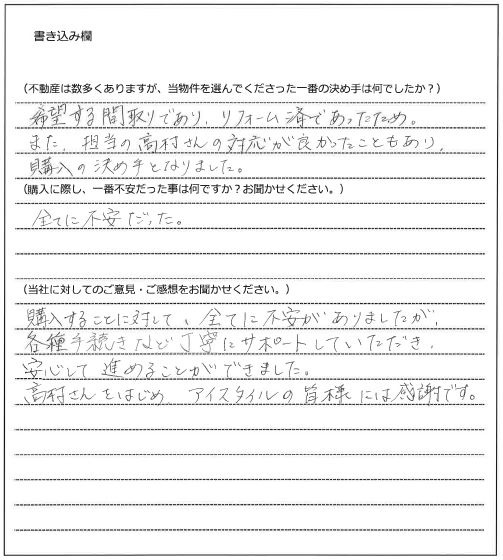 書き込み欄
（不動産は数多くありますが、当物件を選んでくださった一番の決め手は何でしたか？）
希望する間取りであり、リフォーム済であったため。
また、担当の高村さんの対応が良かったこともあり、
購入の決め手となりました。
（購入に際し、一番不安だった事は何ですか？お聞かせください。）
全てに不安だった。
（当社に対してのご意見・ご感想をお聞かせください。）
購入することに対して、全てに不安がありましたが、
各種手続きなど丁寧にサポートしていただき、
安心して進めることができました。
高村さんをはじめ、アイスタイルの皆様には感謝です。